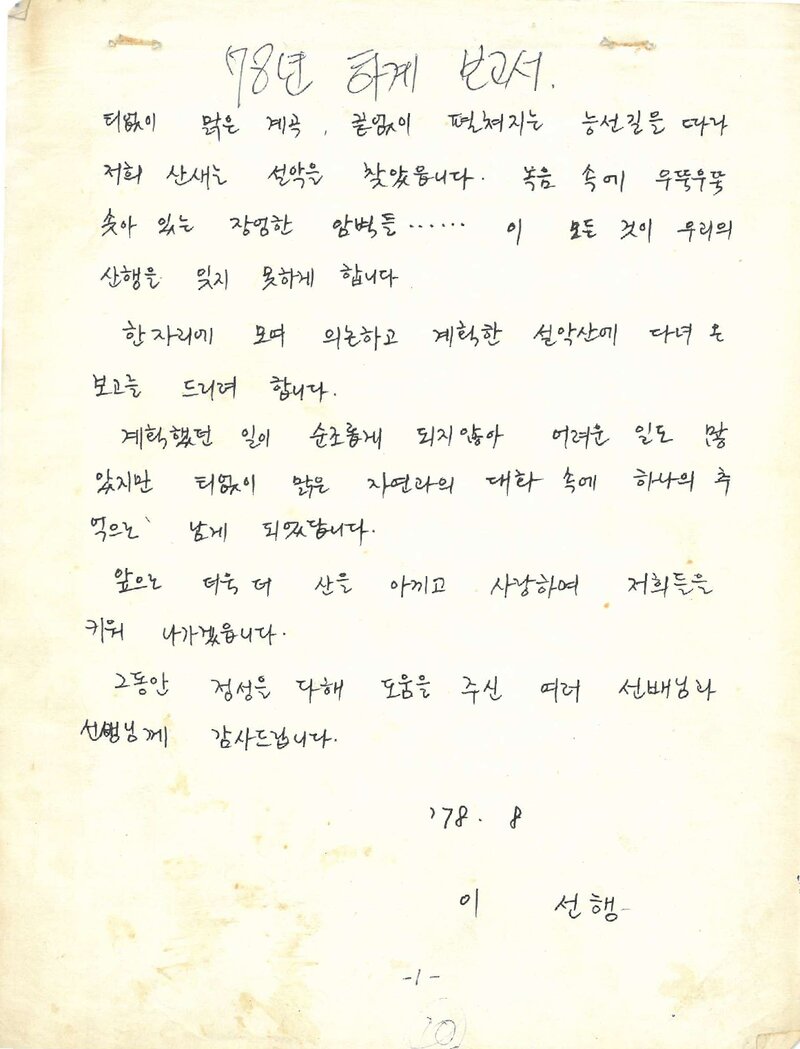 78년 하계 보고서.
티없이 맑은 계곡, 끝없이 펼쳐지는 능선길을 따라
저희 산새는 설악을 찾았읍니다. 녹음 속에 우뚝우뚝
솟아 있는 장엄한 암벽들…… 이 모든 것이 우리의
산행을 잊지 못하게 합니다
한자리에 모여 의논하고 계획한 설악산에 다녀 온
보고를 드리려 합니다.
계획했던 일이 순조롭게 되지않아 어려운 일도 많
았지만 티없이 맑은 자연과의 대화 속에 하나의 추
억으로 남게 되었답니다.
앞으로 더욱 더 산을 아끼고 사랑하여 저희들을
키워 나가겠읍니다.
그동안 정성을 다해 도움을 주신 여러 선배님과
선생님께 감사드립니다.
'78. 8
이 선행
-1-
20